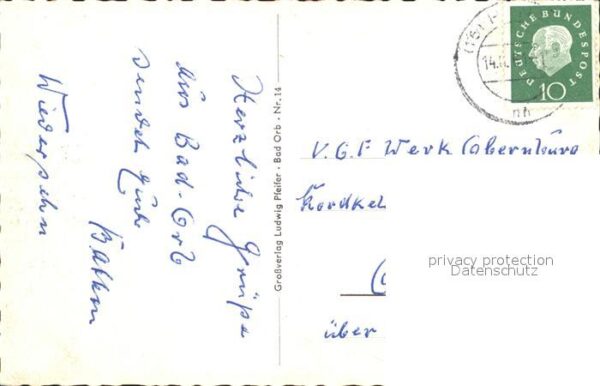 Herzliche Grüße
aus Bad-Orb
sendet Euch
Wiedersehn
Großverlag Ludwig Pfeifer · Bad Orb · Nr. 14
DEUTSCHE BUNDESPOST
10
V.G.F Werk Obernburg
über
privacy protection
Datenschutz